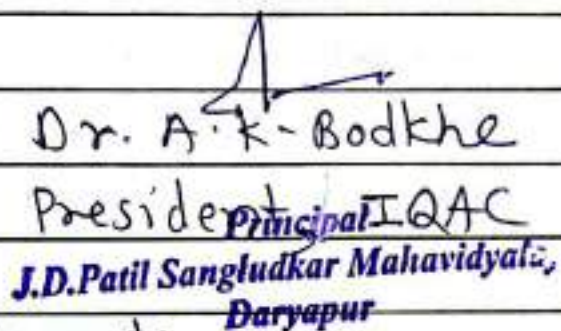 Dr. A. K. Bodkhe
President, IQAC
Principal
J.D.Patil Sangludkar Mahavidyala,
Daryapur